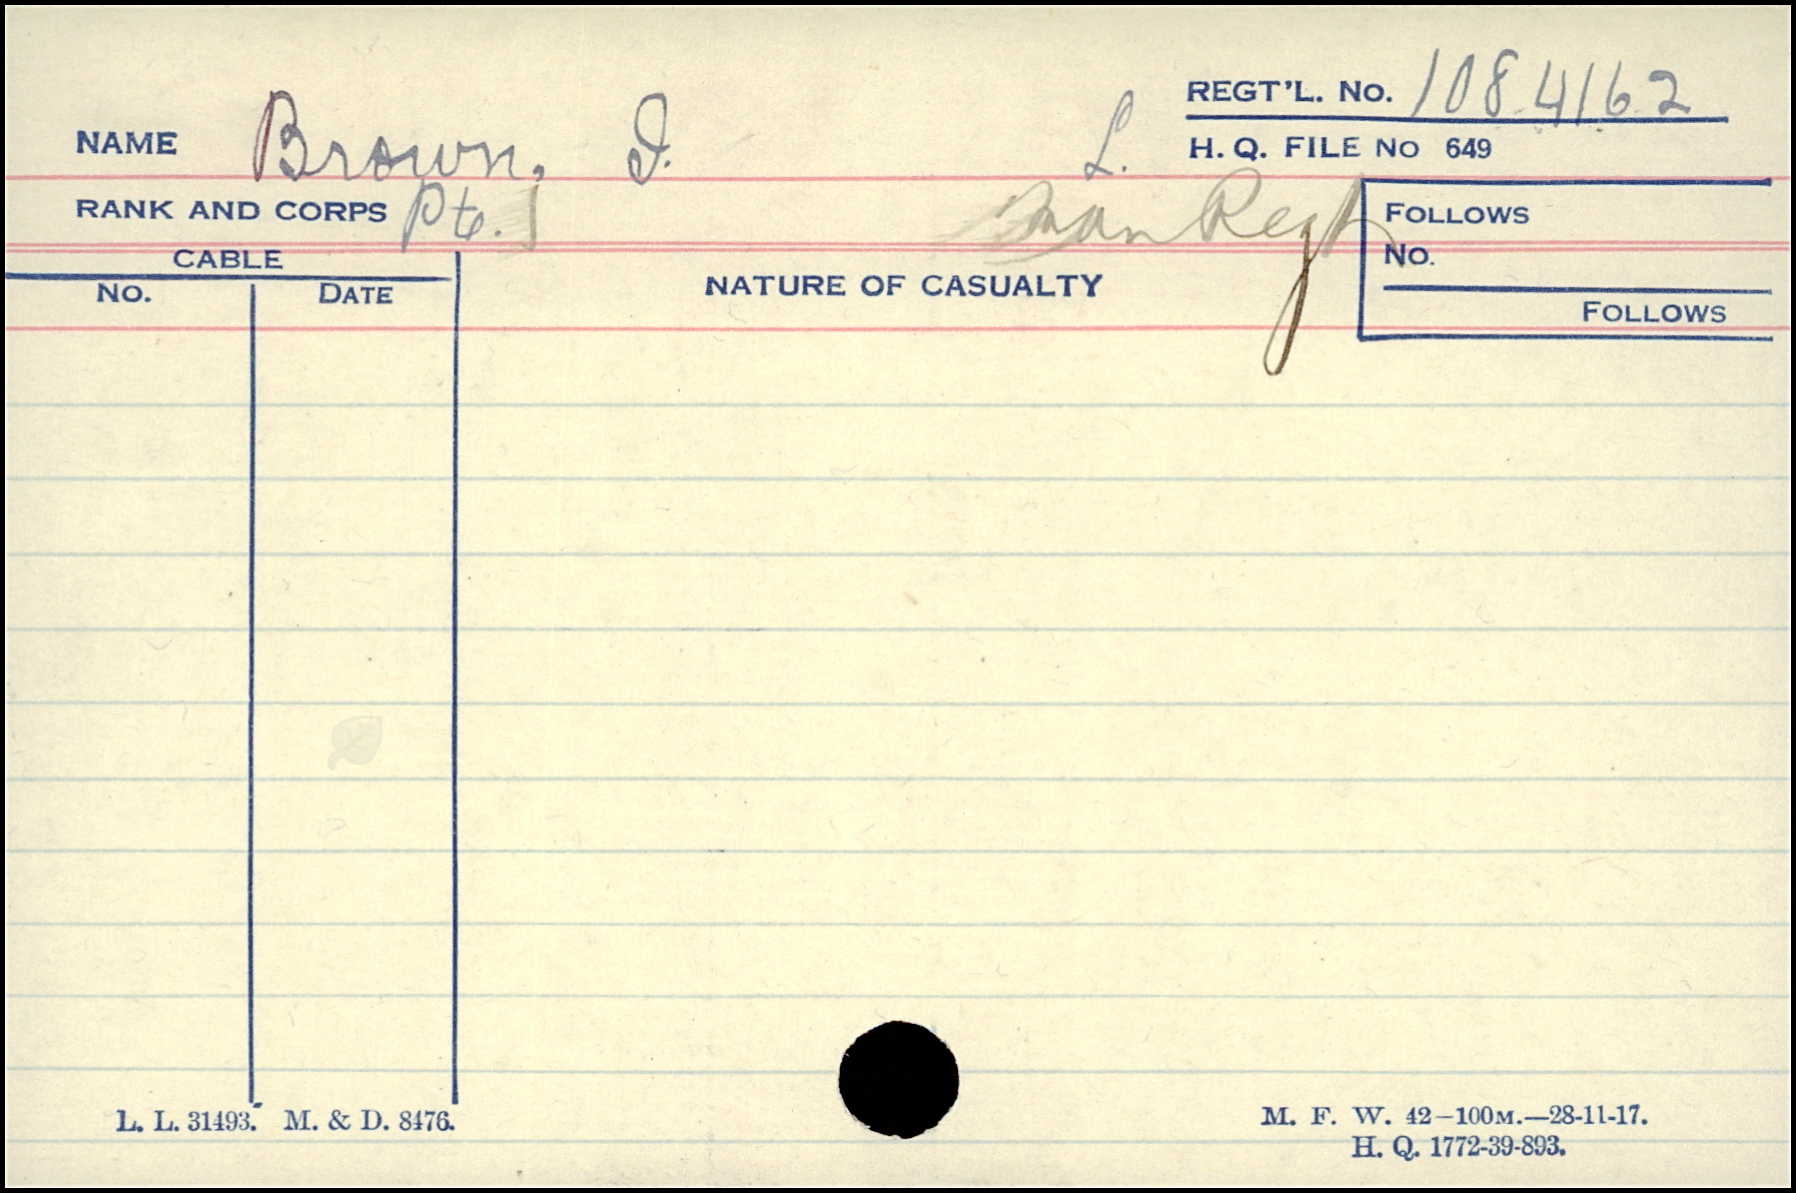 REGT'L. No. 1084162
NAME Brown, I. L.
H. Q. FILE No 649
RANK AND CORPS Pte. Man Regt
FOLLOWS
No.
FOLLOWS
CABLE
No. DATE
NATURE OF CASUALTY
L. L. 31493. M. & D. 8476.
M. F. W. 42—100M.—28-11-17.
H. Q. 1772-39-893.